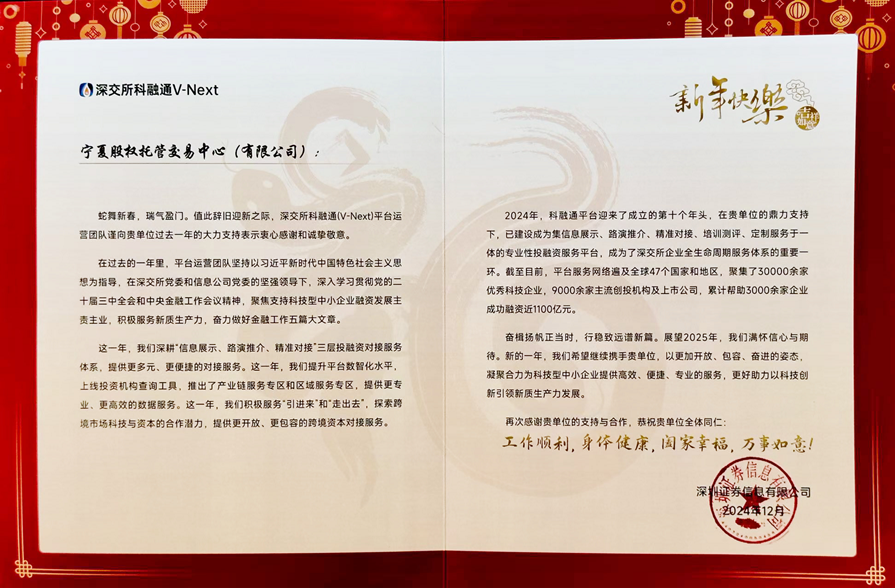 深交所科融通V-Next
宁夏股权托管交易中心（有限公司）：
蛇舞新春，瑞气盈门。值此辞旧迎新之际，深交所科融通(V-Next)平台运
营团队谨向贵单位过去一年的大力支持表示衷心感谢和诚挚敬意。
在过去的一年里，平台运营团队坚持以习近平新时代中国特色社会主义思
想为指导，在深交所党委和信息公司党委的坚强领导下，深入学习贯彻党的二
十届三中全会和中央金融工作会议精神，聚焦支持科技型中小企业融资发展主
责主业，积极服务新质生产力，奋力做好金融工作五篇大文章。
这一年，我们深耕“信息展示、路演推介、精准对接”三层投融资对接服务
体系，提供更多元、更便捷的对接服务。这一年，我们提升平台数智化水平，
上线投资机构查询工具，推出了产业链服务专区和区域服务专区，提供更专
业、更高效的数据服务。这一年，我们积极服务“引进来”和“走出去”，探索跨
境市场科技与资本的合作潜力，提供更开放、更包容的跨境资本对接服务。
新年快樂
2024年，科融通平台迎来了成立的第十个年头，在贵单位的鼎力支持
下，已建设成为集信息展示、路演推介、精准对接、培训测评、定制服务于一
体的专业性投融资服务平台，成为了深交所企业全生命周期服务体系的重要一
环。截至目前，平台服务网络遍及全球47个国家和地区，聚集了30000余家
优秀科技企业，9000余家主流创投机构及上市公司，累计帮助3000余家企业
成功融资近1100亿元。
奋楫扬帆正当时，行稳致远谱新篇。展望2025年，我们满怀信心与期
待。新的一年，我们希望继续携手贵单位，以更加开放、包容、奋进的姿态，
凝聚合力为科技型中小企业提供高效、便捷、专业的服务，更好助力以科技创
新引领新质生产力发展。
再次感谢贵单位的支持与合作，恭祝贵单位全体同仁：
工作顺利，身体健康，阖家幸福，万事如意！
深圳证券信息有限公司
2024年12月